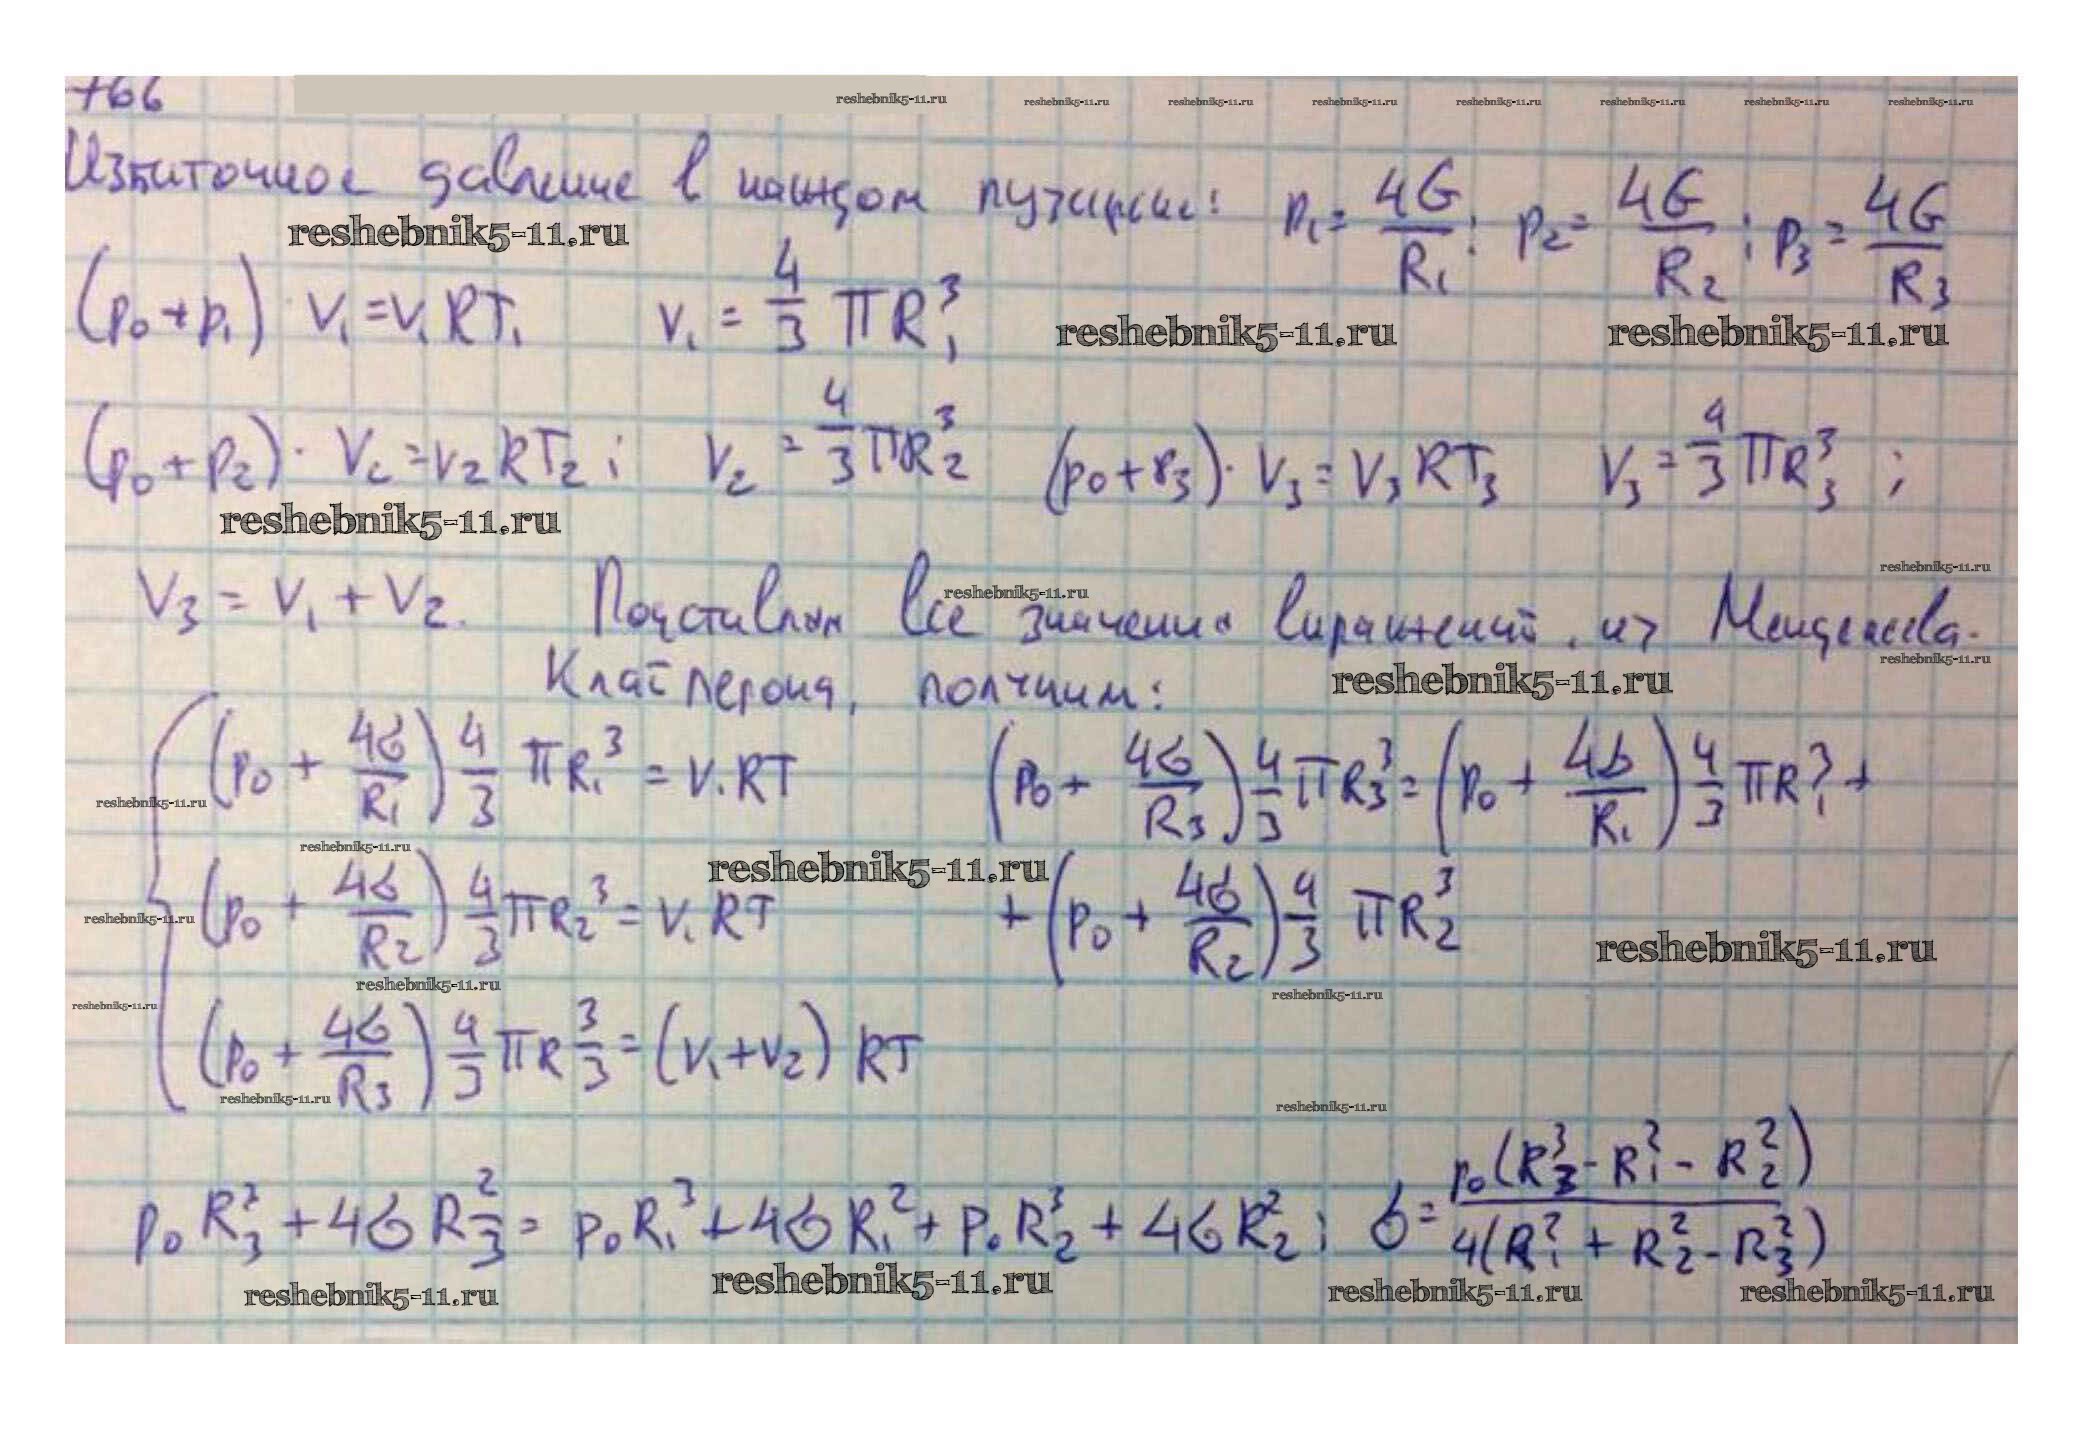 766
reshebnik5-11.ru reshebnik5-11.ru reshebnik5-11.ru reshebnik5-11.ru reshebnik5-11.ru reshebnik5-11.ru reshebnik5-11.ru reshebnik5-11.ru
Избыточное давление в каждом пузырьке: p₁ = 4G/R₁; p₂ = 4G/R₂; p₃ = 4G/R₃
reshebnik5-11.ru
(p₀+p₁)·V₁=ν₁RT₁ V₁ = 4/3 πR₁³
reshebnik5-11.ru reshebnik5-11.ru
(p₀+p₂)·V₂=ν₂RT₂; V₂ = 4/3 πR₂³ (p₀+p₃)·V₃=ν₃RT₃ V₃ = 4/3 πR₃³;
reshebnik5-11.ru
reshebnik5-11.ru
reshebnik5-11.ru
ν₃ = ν₁ + ν₂. Подставим все значения выражений из Менделеева-
reshebnik5-11.ru
Клайперона, получим:
reshebnik5-11.ru
(p₀ + 4σ/R₁) 4/3 πR₁³ = ν₁RT (p₀ + 4σ/R₃) 4/3 πR₃³ = (p₀ + 4σ/R₁) 4/3 πR₁³ +
reshebnik5-11.ru
reshebnik5-11.ru
reshebnik5-11.ru
(p₀ + 4σ/R₂) 4/3 πR₂³ = ν₁RT + (p₀ + 4σ/R₂) 4/3 πR₂³
reshebnik5-11.ru
reshebnik5-11.ru
reshebnik5-11.ru
reshebnik5-11.ru
reshebnik5-11.ru
(p₀ + 4σ/R₃) 4/3 πR₃³ = (ν₁+ν₂) RT
reshebnik5-11.ru
reshebnik5-11.ru
p₀R₃³ + 4σR₃² = p₀R₁³ + 4σR₁² + p₀R₂³ + 4σR₂²; σ = p₀(R₃³ - R₁³ - R₂³)/4(R₁² + R₂² - R₃²)
reshebnik5-11.ru reshebnik5-11.ru reshebnik5-11.ru reshebnik5-11.ru